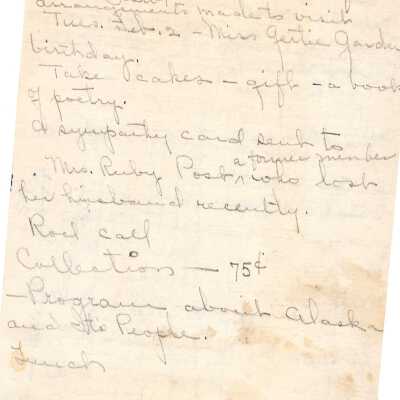 arrangements made to visit
Tues. Feb. 2 - Miss Gertie Garden
birthday.
Take cakes - gift - a book
of poetry.
A sympathy card sent to
Mrs. Ruby Post, a former member who lost
her husband recently.
Roll call
Collection - 75¢
- Program about Alaska
and Its People.
Lunch